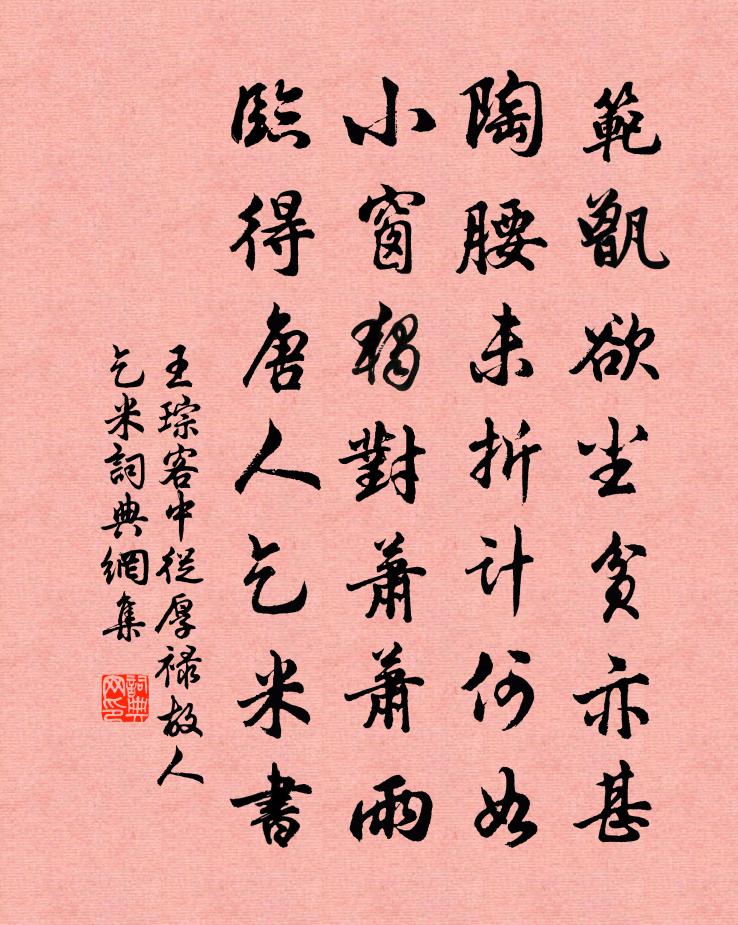 範甑欲尘貧亦甚
陶腰未折計何如
小窗獨對蕭蕭雨
臨得唐人乞米書
王琮客中從厚禄故人
乞米詞典網集
詞典网印